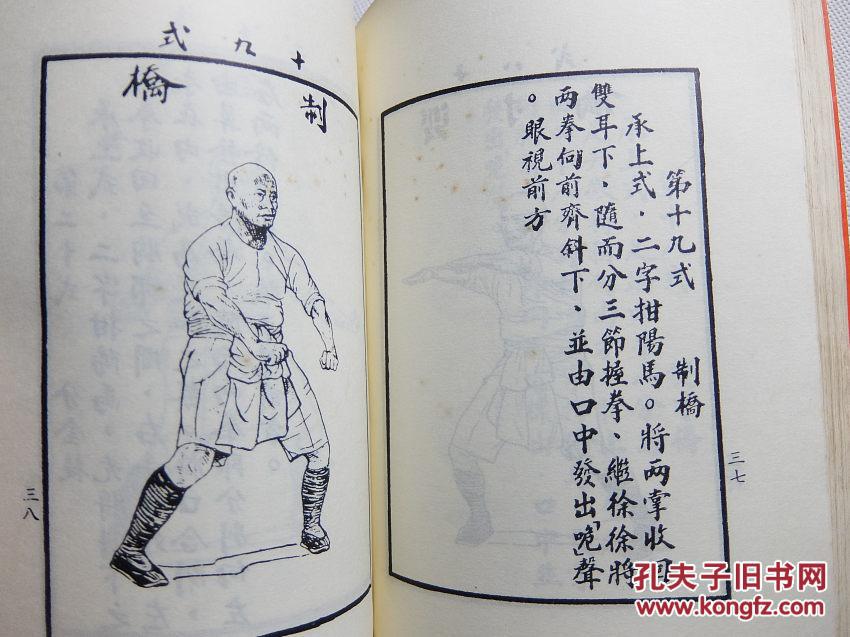 第十九式 制橋
承上式．二字拑陽馬。將两掌收囘
雙耳下、隨而分三節握拳、繼徐徐將
两拳向前齊斜下、並由口中發出「唍」聲
。眼視前方
三七
十九式
制橋
三八
孔夫子旧书网
www.kongfz.com